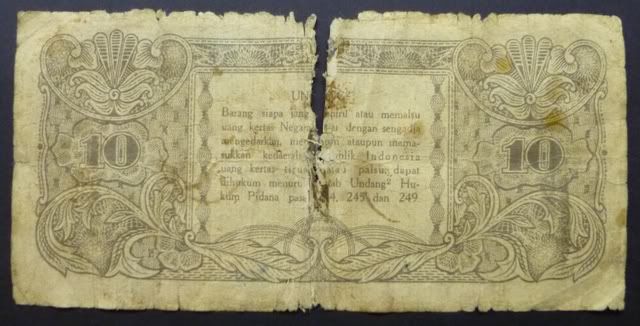 UN
10
Barang siapa jang niru atau memalsu
uang kertas Negara dengan sengadja
mengedarkan, ataupun mema-
sukkan kedalam blik Indonesia
uang kertas tiruan atau palsu, dapat
dihukum menurut tab Undang² Hu-
kum Pidana pas 4, 245 dan 249
10